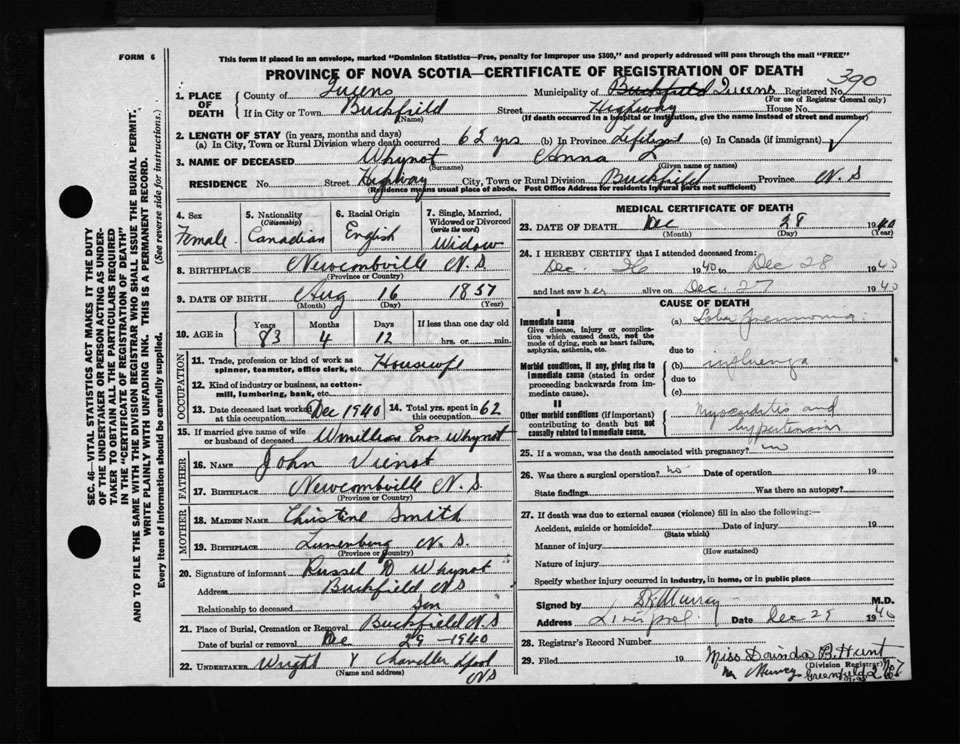 FORM 6
This form if placed in an envelope, marked "Dominion Statistics—Free, penalty for improper use $300," and properly addressed will pass through the mail "FREE"
PROVINCE OF NOVA SCOTIA—CERTIFICATE OF REGISTRATION OF DEATH
390
1. PLACE OF DEATH
County of Queens Municipality of Buckfield Queens Registered No.
(For use of Registrar General only)
If in City or Town Buckfield Street Highway House No.
(Name) (If death occurred in a hospital or institution, give the name instead of street and number)
2. LENGTH OF STAY (in years, months and days)
(a) In City, Town or Rural Division where death occurred 62 yrs (b) In Province Lifetime (c) In Canada (if immigrant)
3. NAME OF DECEASED Whynot Anna L
(Surname) (Given name or names)
RESIDENCE No. Street Highway City, Town or Rural Division Buckfield Province N. S
(Residence means usual place of abode. Post Office Address for residents in rural parts not sufficient)
4. Sex Female
5. Nationality (Citizenship) Canadian
6. Racial Origin English
7. Single, Married, Widowed or Divorced (write the word) Widow
8. BIRTHPLACE Newcombville N. S
(Province or Country)
9. DATE OF BIRTH Aug 16 1857
(Month) (Day) (Year)
10. AGE in Years Months Days If less than one day old
83 4 12 hrs. or min.
OCCUPATION
11. Trade, profession or kind of work as spinner, teamster, office clerk, etc. Housewife
12. Kind of industry or business, as cotton-mill, lumbering, bank, etc.
13. Date deceased last worked at this occupation Dec 1940 14. Total yrs. spent in this occupation 62
15. If married give name of wife or husband of deceased Wmillian Enos Whynot
FATHER
16. NAME John Vienot
17. BIRTHPLACE Newcombville N. S.
(Province or Country)
MOTHER
18. MAIDEN NAME Christine Smith
19. BIRTHPLACE Lunenburg N. S.
(Province or Country)
20. Signature of informant Russel D Whynot
Address Buckfield N S
Relationship to deceased Son
21. Place of Burial, Cremation or Removal Buckfield N S
Date of burial or removal Dec 29 - 1940
22. UNDERTAKER Wright & Chandler Lpool
(Name and address) N S
MEDICAL CERTIFICATE OF DEATH
23. DATE OF DEATH Dec 28 1940
(Month) (Day) (Year)
24. I HEREBY CERTIFY that I attended deceased from:
Dec. 26 1940 to Dec 28 1940
and last saw her alive on Dec. 27 1940
CAUSE OF DEATH
I
Immediate cause
Give disease, injury or complication which caused death, not the mode of dying, such as heart failure, asphyxia, asthenia, etc.
(a) Lobar pneumonia
due to
Morbid conditions, if any, giving rise to immediate cause (stated in order proceeding backwards from immediate cause).
(b) influenza
due to
(c)
II
Other morbid conditions (if important) contributing to death but not causally related to immediate cause.
Myocarditis and
hypertension
25. If a woman, was the death associated with pregnancy? no
26. Was there a surgical operation? no Date of operation 19
State findings Was there an autopsy?
27. If death was due to external causes (violence) fill in also the following:—
Accident, suicide or homicide? Date of injury 19
(State which)
Manner of injury
(How sustained)
Nature of injury
Specify whether injury occurred in industry, in home, or in public place
Signed by S K Murray M.D.
Address Liverpool Date Dec 29 1940
28. Registrar's Record Number
29. Filed 19 Miss Dorinda B. Hunt
(Division Registrar)
Greenfield
SEC. 46—VITAL STATISTICS ACT MAKES IT THE DUTY
OF THE UNDERTAKER OR PERSON ACTING AS UNDER-
TAKER TO OBTAIN ALL THE PARTICULARS REQUIRED
IN THE "CERTIFICATE OF REGISTRATION OF DEATH"
AND TO FILE THE SAME WITH THE DIVISION REGISTRAR WHO SHALL ISSUE THE BURIAL PERMIT.
WRITE PLAINLY WITH UNFADING INK. THIS IS A PERMANENT RECORD.
Every item of information should be carefully supplied. (See reverse side for instructions.)